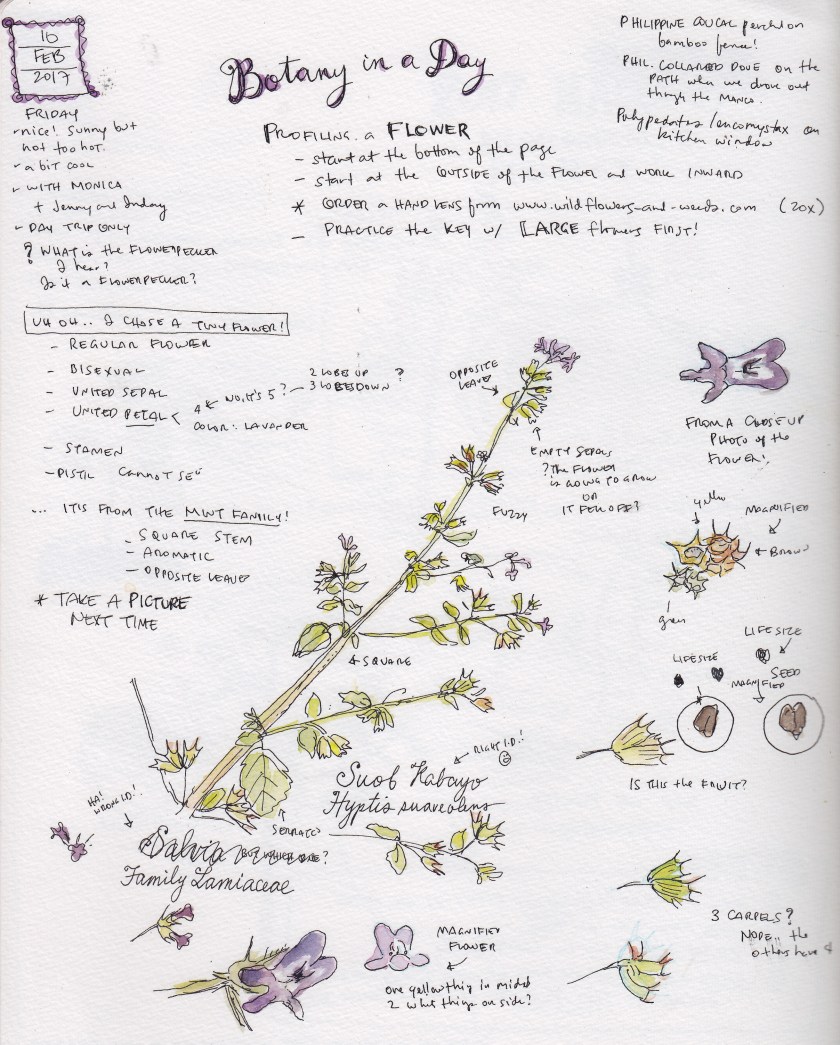 10
FEB
2017
FRIDAY
nice! Sunny but
not too hot.
a bit cool
WITH MONICA
+ Jenny and Inday
DAY TRIP ONLY
? WHAT is the FLOWERPECKER
I hear?
Is it a FLOWERPECKER?
Botany in a Day
PHILIPPINE COUCAL perched on
bamboo fence!
PHIL. COLLARED DOVE on the
PATH when we drove out
through the MANGA.
Polypedates leucomystax on
kitchen window
PROFILING a FLOWER
- start at the bottom of the page
- start at the OUTSIDE of the FLOWER and WORK INWARD
* ORDER a HAND LENS from www.wildflowers-and-weeds.com (20x)
- PRACTICE the KEY w/ LARGE flowers FIRST!
UH OH.. I CHOSE A TINY FLOWER!
- REGULAR FLOWER
- BISEXUAL
- UNITED SEPAL
- UNITED PETAL < 4 ← NO, IT'S 5? - 2 LOBES UP ?
3 LOBES DOWN
COLOR: LAVENDER
- STAMEN
- PISTIL Cannot SEE
... IT'S FROM THE MINT FAMILY!
- SQUARE STEM
- AROMATIC
- OPPOSITE LEAVES
* TAKE A PICTURE
NEXT TIME
OPPOSITE
LEAVES
EMPTY SEPALS
? The FLOWER
is GOING TO GROW
OR
IT FELL OFF?
FUZZY
SQUARE
FROM A CLOSE UP
PHOTO of the
FLOWER!
yellow
MAGNIFIED
BROWN
green
LIFE SIZE
LIFE SIZE
SEED
MAGNIFIED
IS THIS the FRUIT?
RIGHT I.D.!
Suob Kabayo
Hyptis suaveolens
SERRATED
HA!
WRONG I.D.!
Salvia BUT WHICH ONE?
Family Lamiaceae
MAGNIFIED
FLOWER
one yellow thing in middle
2 white things on side?
3 CARPELS?
NOPE.. the
others have 4